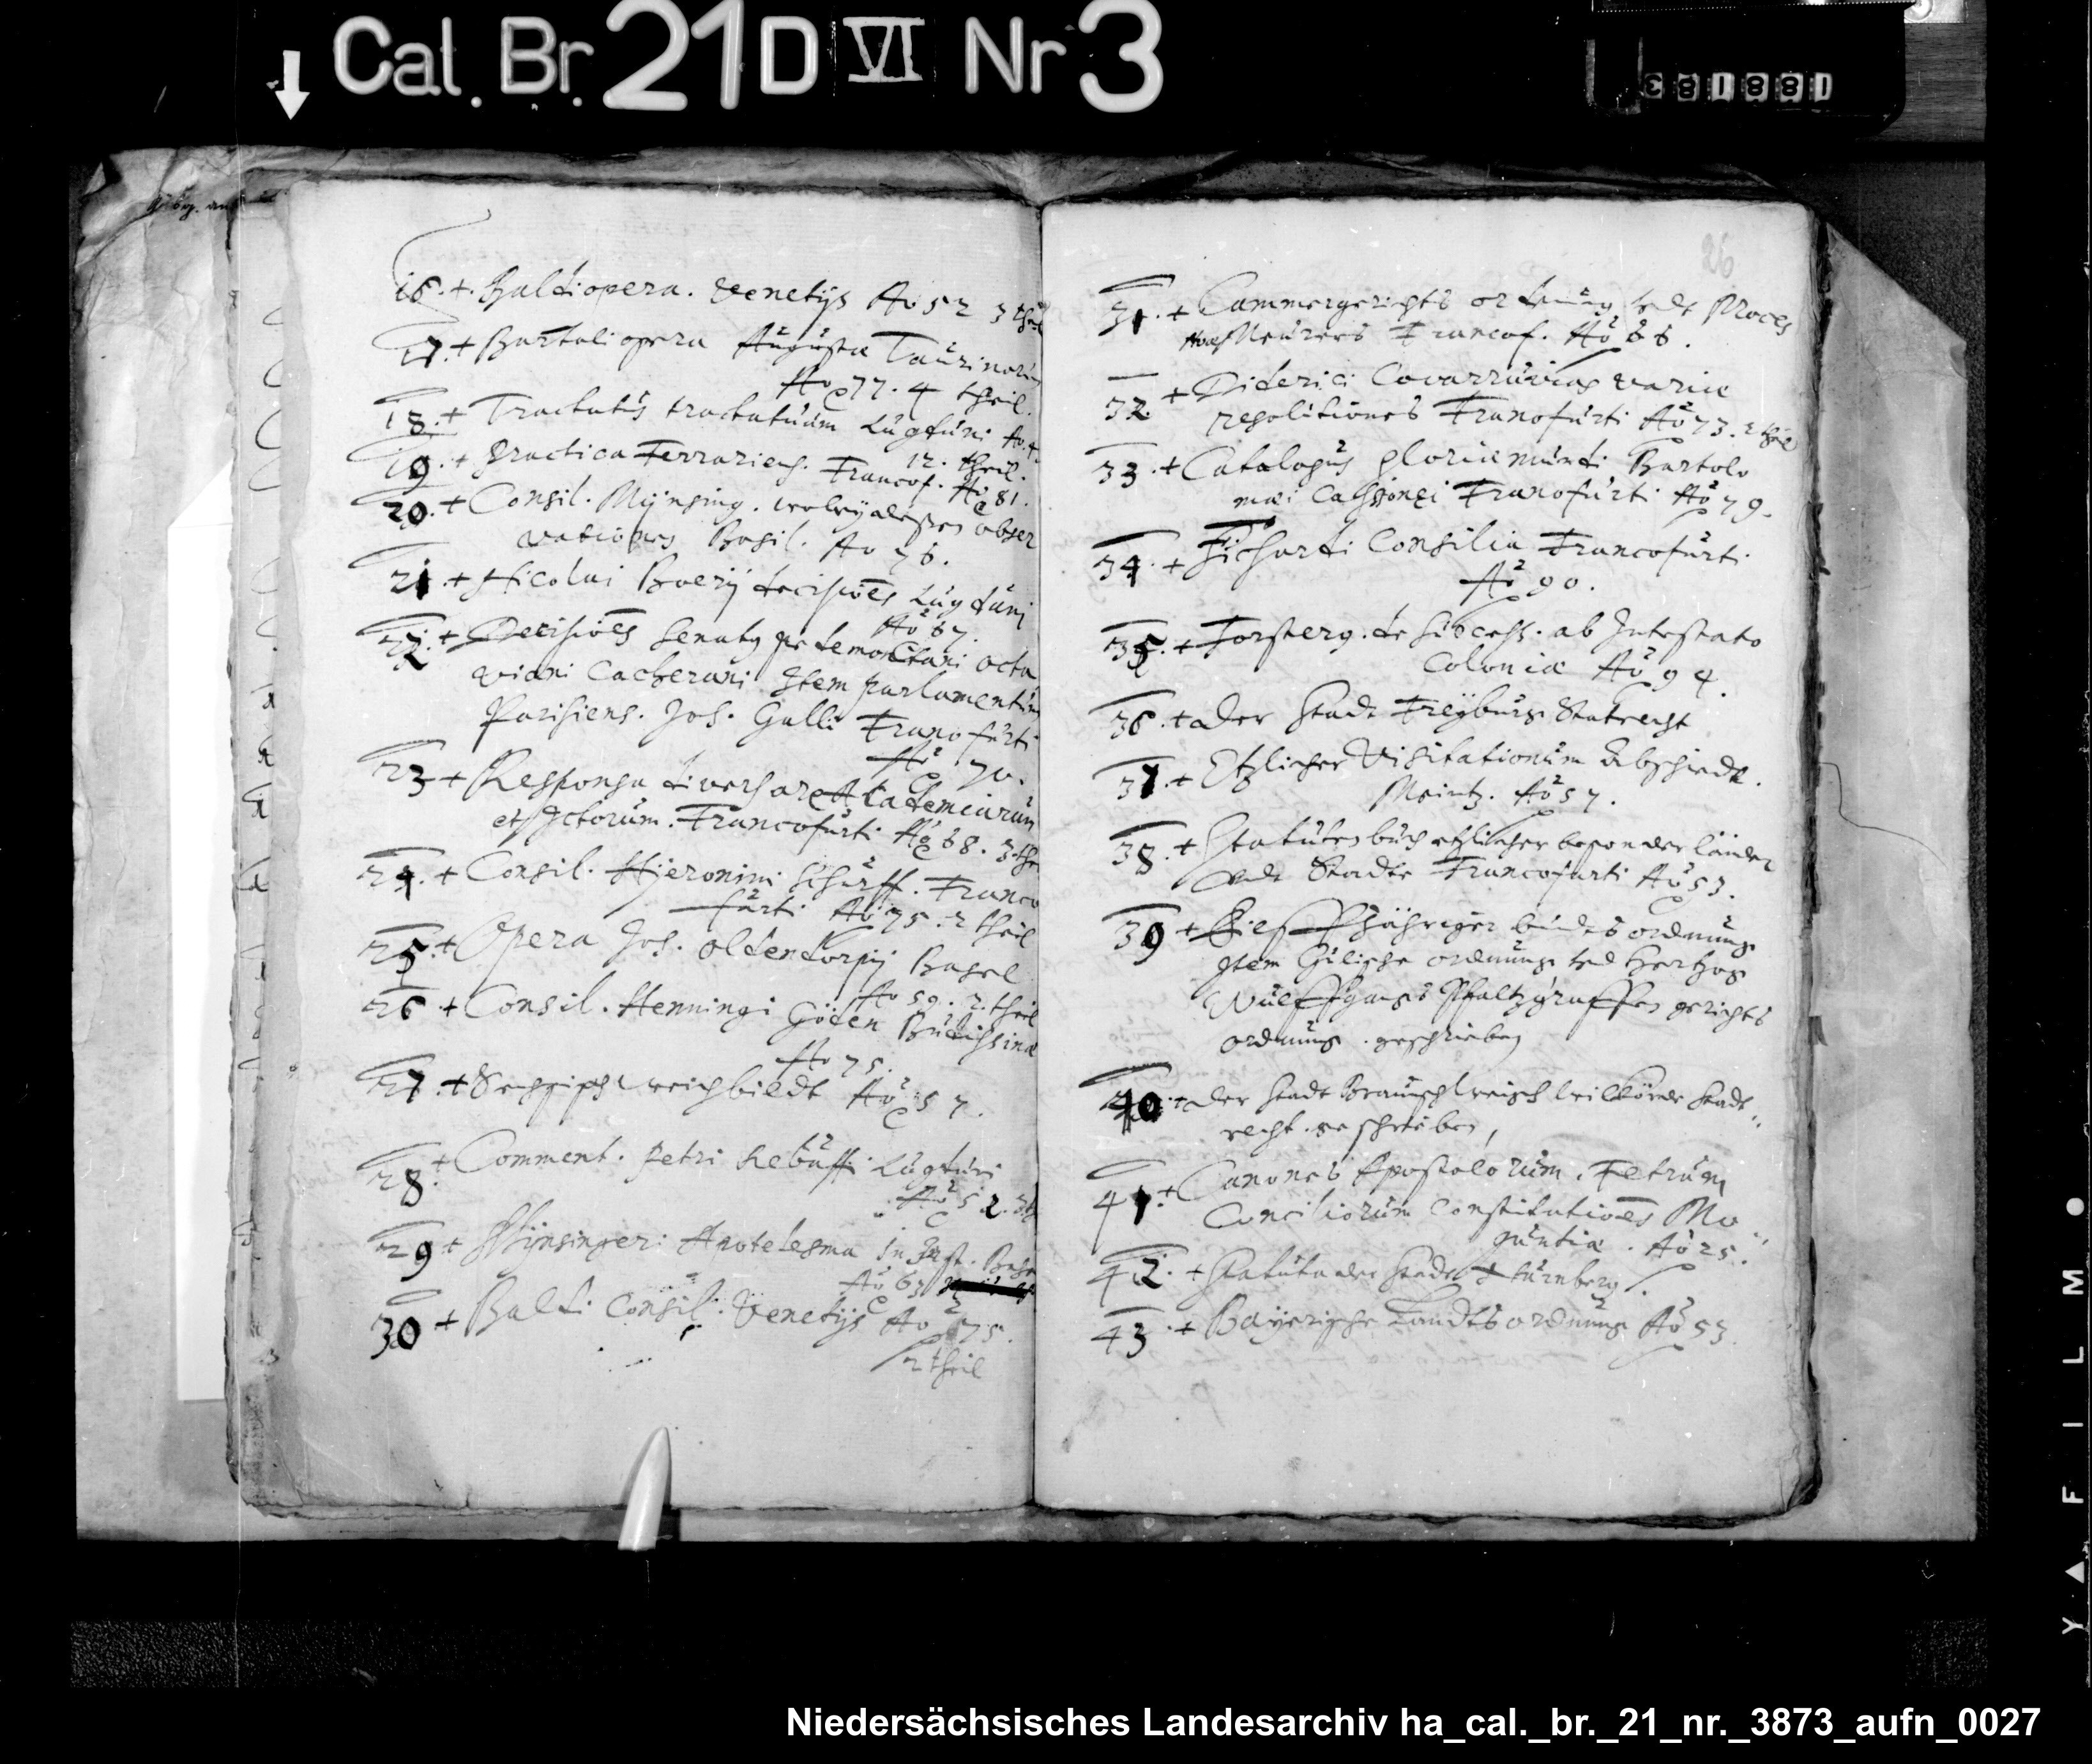 Cal. Br. 21 D VI Nr 3
381881
16. + Baldi opera. Venetijs Ao 52 3 theil
17. + Bartoli opera Augustæ Taurinorum
Ao 77. 4 theil.
18. + Tractatus tractatuum Lugduni Ao 4
12. theil.
19. + Practica Ferrariens. Francof. Ao 81.
20. + Consil. Mynsing. obser
vationes Basil. Ao 76.
21. + Nicolai Boerij decisiões Lugduni
Ao 67.
22. + Decisiões Senatus pedemontani Octa
viani Cacherani Item parlamentum
Parisiens. Joh. Galli Francofurti
Ao 70.
23 + Responsa diversar Academiarum
et Jctorum. Francofurti Ao 68. 3 the
24. + Consil. Hyeronimi Schurff. Franco
furti Ao 75. 2 theil
25. + Opera Joh. Oldendorpij Basel
Ao 59. 2. theil
26 + Consil. Henningi Göden Budissinæ
Ao 75.
27. + Sechsisch weichbildt Ao 57.
28. + Comment. Petri Rebuffi Lugduni
Ao 5 2.
29 + Mynsingeri Apotelesma In Inst. Basel
Ao 63
30 + Baldi Consil. Venetijs Ao 75.
2 theil
26
31. + Cammergerichts ordnung undt Proces
Noe Meurers Francof. Ao 66.
32. + Diderici Covarruvias variæ
resolutiones Francofurti Ao 73. 2 theil
33. + Catalogus gloriæ mundi Bartolo
mæi Cassonei Francofurti Ao 79.
34. + Fichardi Consilia Francofurti
Ao 90.
35. + Forsterg. de success. ab Intestato
Coloniæ Ao 94.
36. + Der Stadt Freyburg Statrecht
37. + Etzlicher Visitationum Abschiedt.
Meintz. Ao 57.
38. + Statutenbuch etzlicher besonder länder
undt Stadte Francofurti Ao 53.
39 + jähriger bundts ordnung
Item Gülische ordnung undt Hertzog
Wulffgangs Pfaltzgraffen gerichts
ordnung. geschrieben
40. + Der Stadt Braunschweigk willköree Stadt
recht. geschrieben,
41. + Canones Apostolorum.
Conciliorum Constitutiões Mo
guntiæ. Ao 25.
42. + Statuta der Stadt Nürnberg.
43. + Bayerische Landtsordnung Ao 53
Niedersächsisches Landesarchiv ha_cal._br._21_nr._3873_aufn_0027
Y ▲ F I L M ●